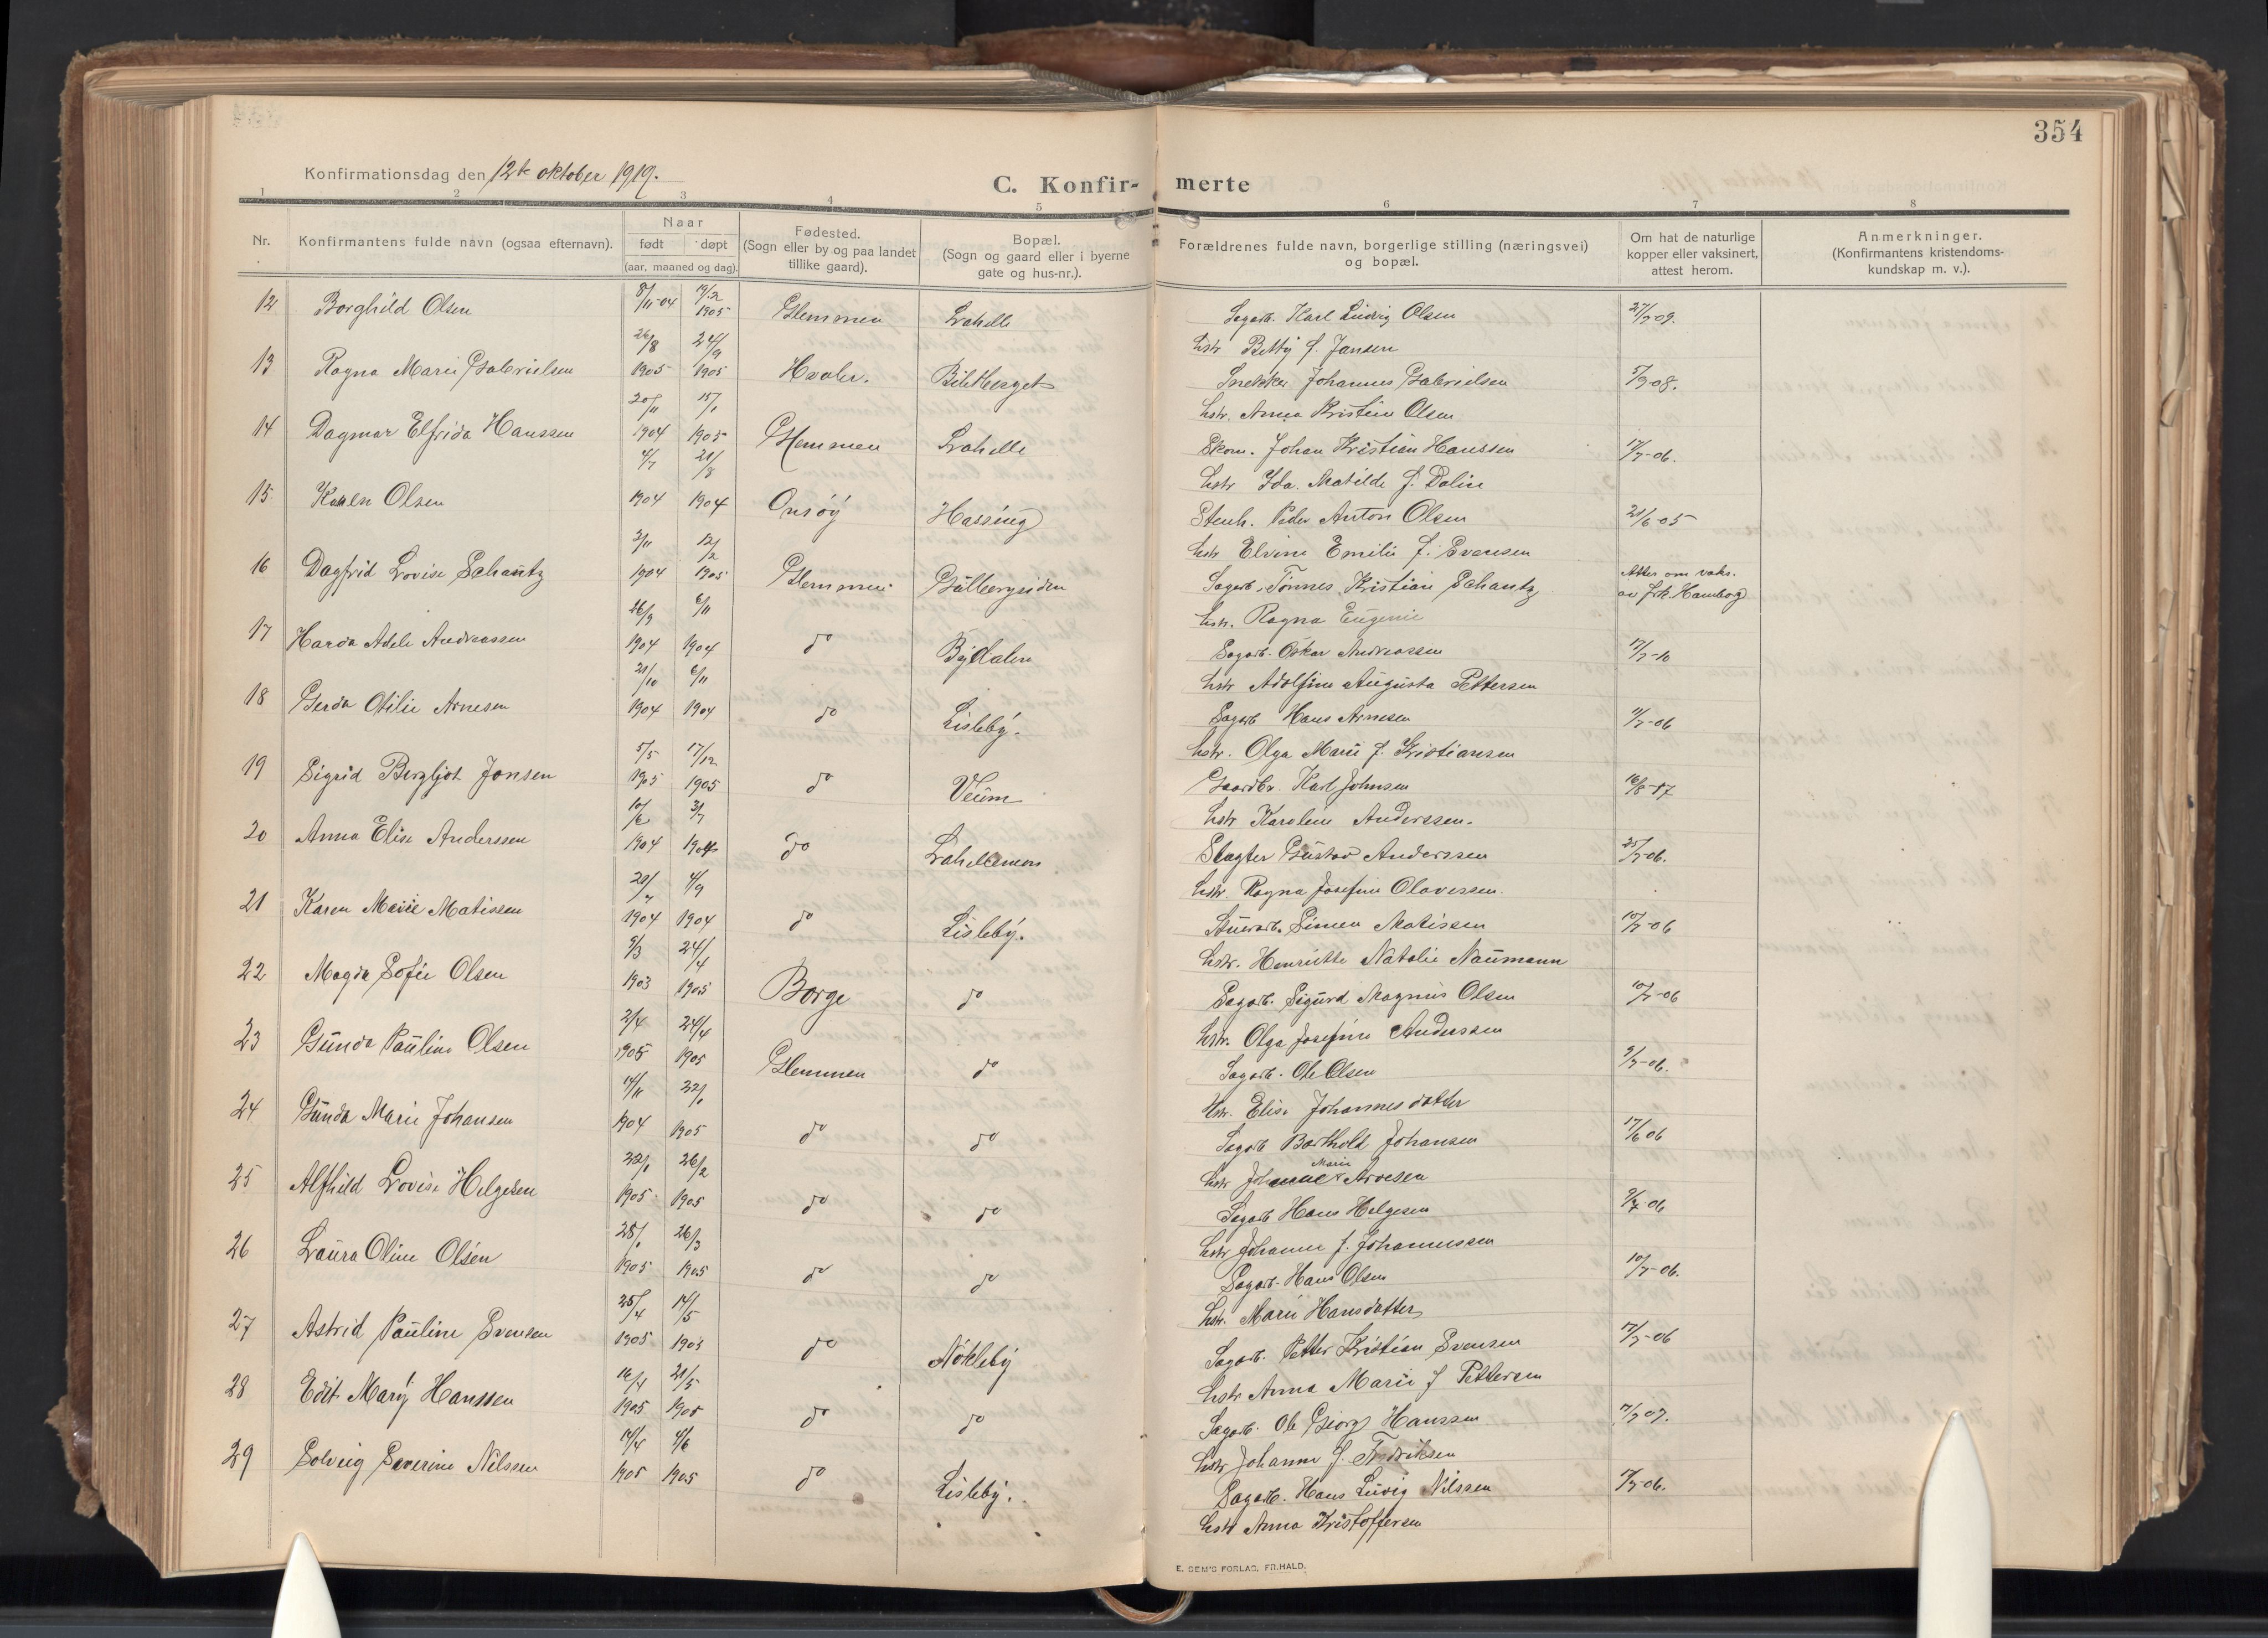 354
Konfirmationsdag den 12te oktober 1919.
C. Konfir- merte
1 2 3 4 5 6 7 8
Nr.
Konfirmantens fulde navn (ogsaa efternavn).
Naar
født døpt
(aar, maaned og dag).
Fødested.
(Sogn eller by og paa landet
tillike gaard).
Bopæl.
(Sogn og gaard eller i byerne
gate og hus-nr.).
Forældrenes fulde navn, borgerlige stilling (næringsvei)
og bopæl.
Om hat de naturlige
kopper eller vaksinert,
attest herom.
Anmerkninger.
(Konfirmantens kristendoms-
kundskap m. v.).
12 Borghild Olsen 8/11-04 19/2 1905 Glemmen Lahelle Sagarb. Karl Ludvig Olsen 27/7 09.
hstr Betty f. Jansen
13 Ragna Marie Gabrielsen 26/8 1905 24/9 1905 Hvaler. Bilitberget Snekker Johannes Gabrielsen 5/9-08.
hstr. Anna Kristine Olsen
14 Dagmar Elfrida Hanssen 20/11 1904 15/1 1905 Glemmen Lahelle Skom. Johan Kristian Hanssen 17/7-06.
hstr Ida Matilde f. Dalin
15 Karen Olsen 4/7 1904 21/8 1904 Onsöy Hassing Stenh. Peder Anton Olsen 21/6-05
hstr Elvine Emilie f. Evensen
16 Dagfrid Lovise Schantz 3/11 1904 12/2 1905 Glemmen Gülbergsiden Sagarb. Tönnes Kristian Schantz Atter om vaks.
av frk. Hamborg
hstr. Ragna Eugenie
17 Harda Adele Andreassen 26/9 1904 6/11 1904 do Bydalen Sagarb. Oskar Andreassen 17/7-10
hstr Adolfine Augusta Pettersen
18 Gerda Otilie Arnesen 21/10 1904 6/11 1904 do Lisleby. Sagarb Hans Arnesen 11/7-06
hstr. Olga Marie f. Kristiansen
19 Sigrid Bergljot Jonsen 5/5 1905 17/12 1905 do Veum Gaardbr. Karl Johnsen 16/8-17
hstr Karoline Anderssen.
20 Anna Elise Anderssen 10/6 1904 3/7 1904 do Lahellemoen Slagter Gustav Anderssen 25/7-06.
hstr. Ragna Josefine Olavessen.
21 Karen Marie Matissen 20/7 1904 4/9 1904 do Lisleby. Stuerarb. Simen Matissen 10/7-06
hstr. Henriette Natalie Naumann
22 Magda Sofie Olsen 9/3 1903 24/4 1905 Borge do Sagarb. Sigurd Magnus Olsen 10/7-06
hstr. Olga Josefine Anderssen
23 Gunda Pauline Olsen 2/4 1905 24/4 1905 Glemmen do Sagarb. Ole Olsen 9/7-06.
Hstr. Elise Johannesdatter
24 Gunda Marie Johansen 14/11 1904 22/1 1905 do do Sagarb Barthold Johansen 17/6 06
hstr Johanne Marie Arvesen
25 Alfhild Lovise Helgesen 22/1 1905 26/2 1905 do do Sagarb Hans Helgesen 9/7-06
hstr Johanne f. Johannessen
26 Laura Oline Olsen 28/1 1905 26/3 1905 do do Sagarb. Hans Olsen 10/7-06.
hstr. Marie Hansdatter
27 Astrid Pauline Svensen 25/4 1905 14/5 1905 do Nökleby Sagarb. Petter Kristian Svensen 17/7-06
hstr Anna Marie f Pettersen
28 Edit Mary Hanssen 16/4 1905 21/5 1905 do do Sagarb. Ole Georg Hanssen 7/7 07.
hstr Johanne f. Fredriksen
29 Solveig Severine Nilssen 14/4 1905 4/6 1905 do Lisleby. Sagarb. Hans Ludvig Nilssen 7/7-06.
hstr Anna Kristoffersen
E. SEM'S FORLAG, FR.HALD.